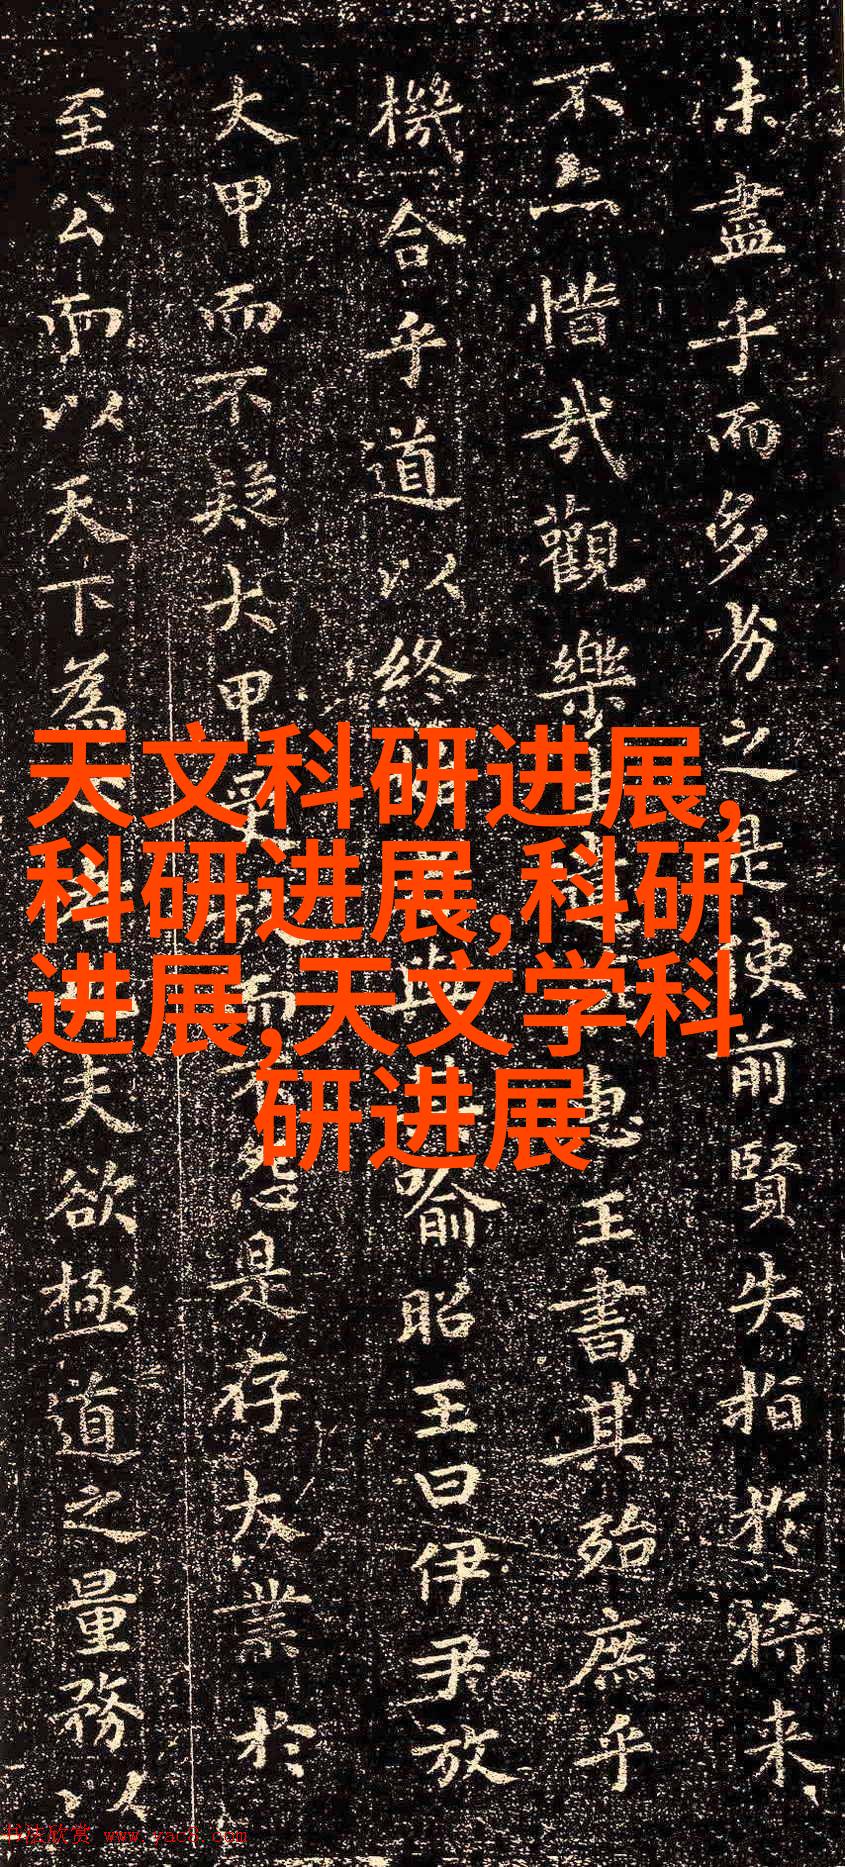 未盡乎而多劣之是使前賢失指於將来
不亦惜哉觀樂生遺惠王書其殆庶乎
機合乎道以終與其喻昭王曰伊尹放
大甲而不疑大甲受放而不怨是存大業於
至公而以天下為者夫欲極道之量務以
天文科研进展,
科研进展,科研
进展,天文学科
研进展
书法欣赏 www.yac8.com